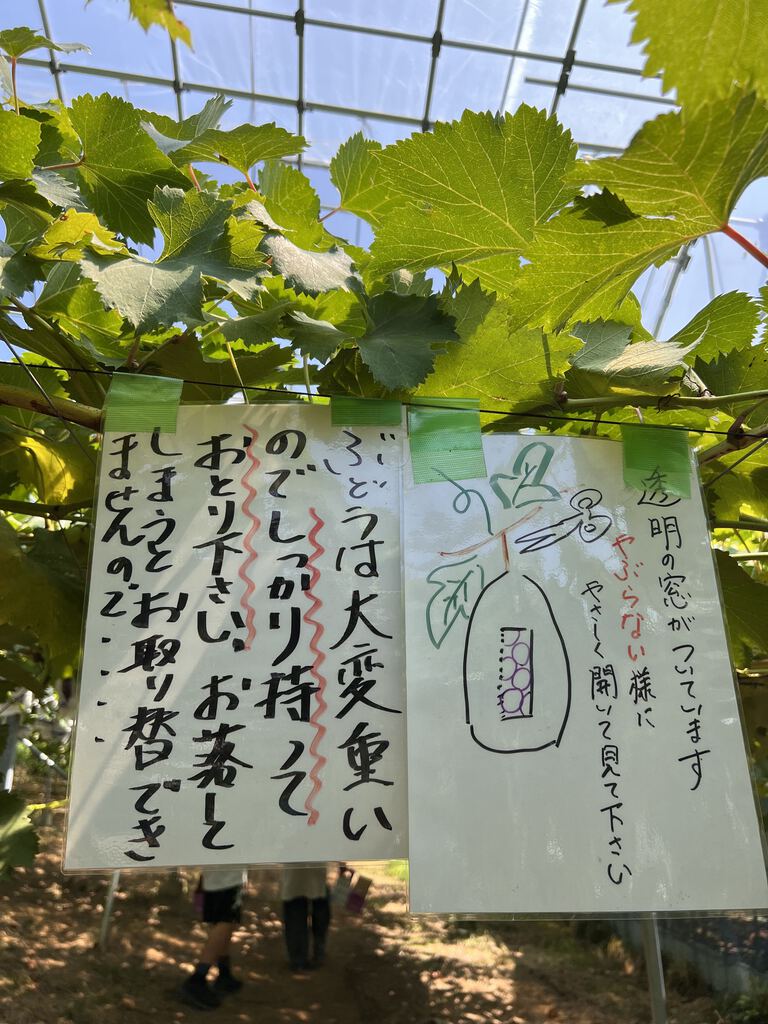 透明の窓がついています
やぶらない様に
やさしく開いて見て下さい
ぶどうは大変重い
のでしっかり持って
おとり下さい。お落して
しまうとお取り替でき
ませんので・・・・